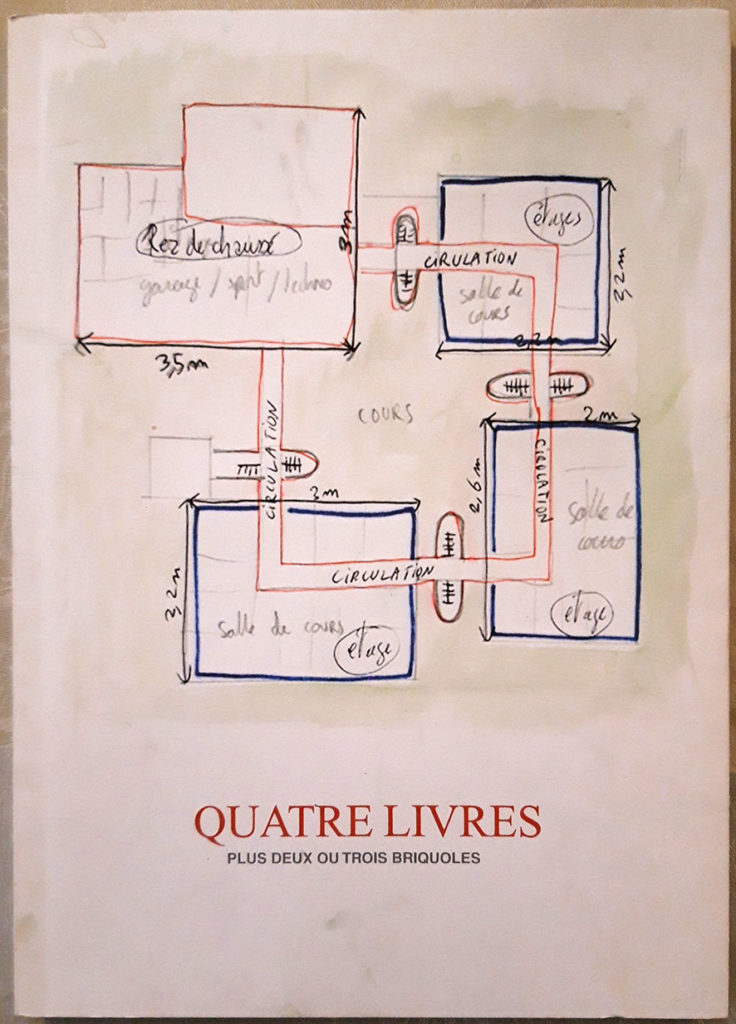 étages
Rez de chaussé
3m
CIRULATION
garage / sport / techno
salle de
cours
3,2m
2,2m
3,5m
COURS
2m
CIRCULATION
CIRCULATION
2,6m
3m
salle de
cours
CIRCULATION
3,2m
salle de cours
étage
étage
QUATRE LIVRES
PLUS DEUX OU TROIS BRIQUOLES